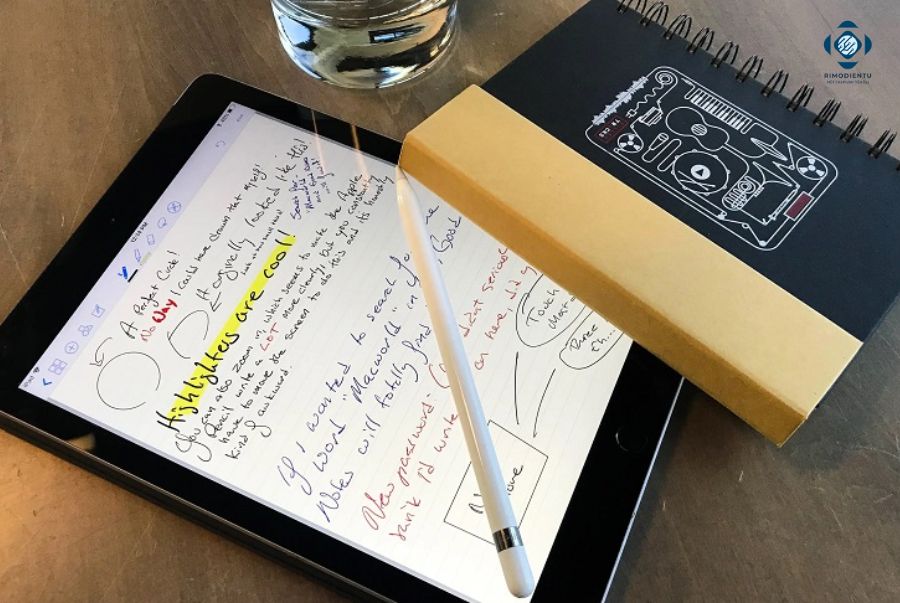 RIMODIENTU
12:58 PM
A Perfect Circle!
No Way! I could have drawn that myself!
It originally looked like this!
Highlighters are cool!
You can also zoom in, which seems to make the Apple
Pencil write a LOT more clearly, but you constantly
have to move the screen to do this and it's honestly
kind of awkward.
If I wanted to search for the
word "Macworld" in
Notes will totally find Good
New password:
didn't seriously
think I'd write on here, did y
Touch
Three